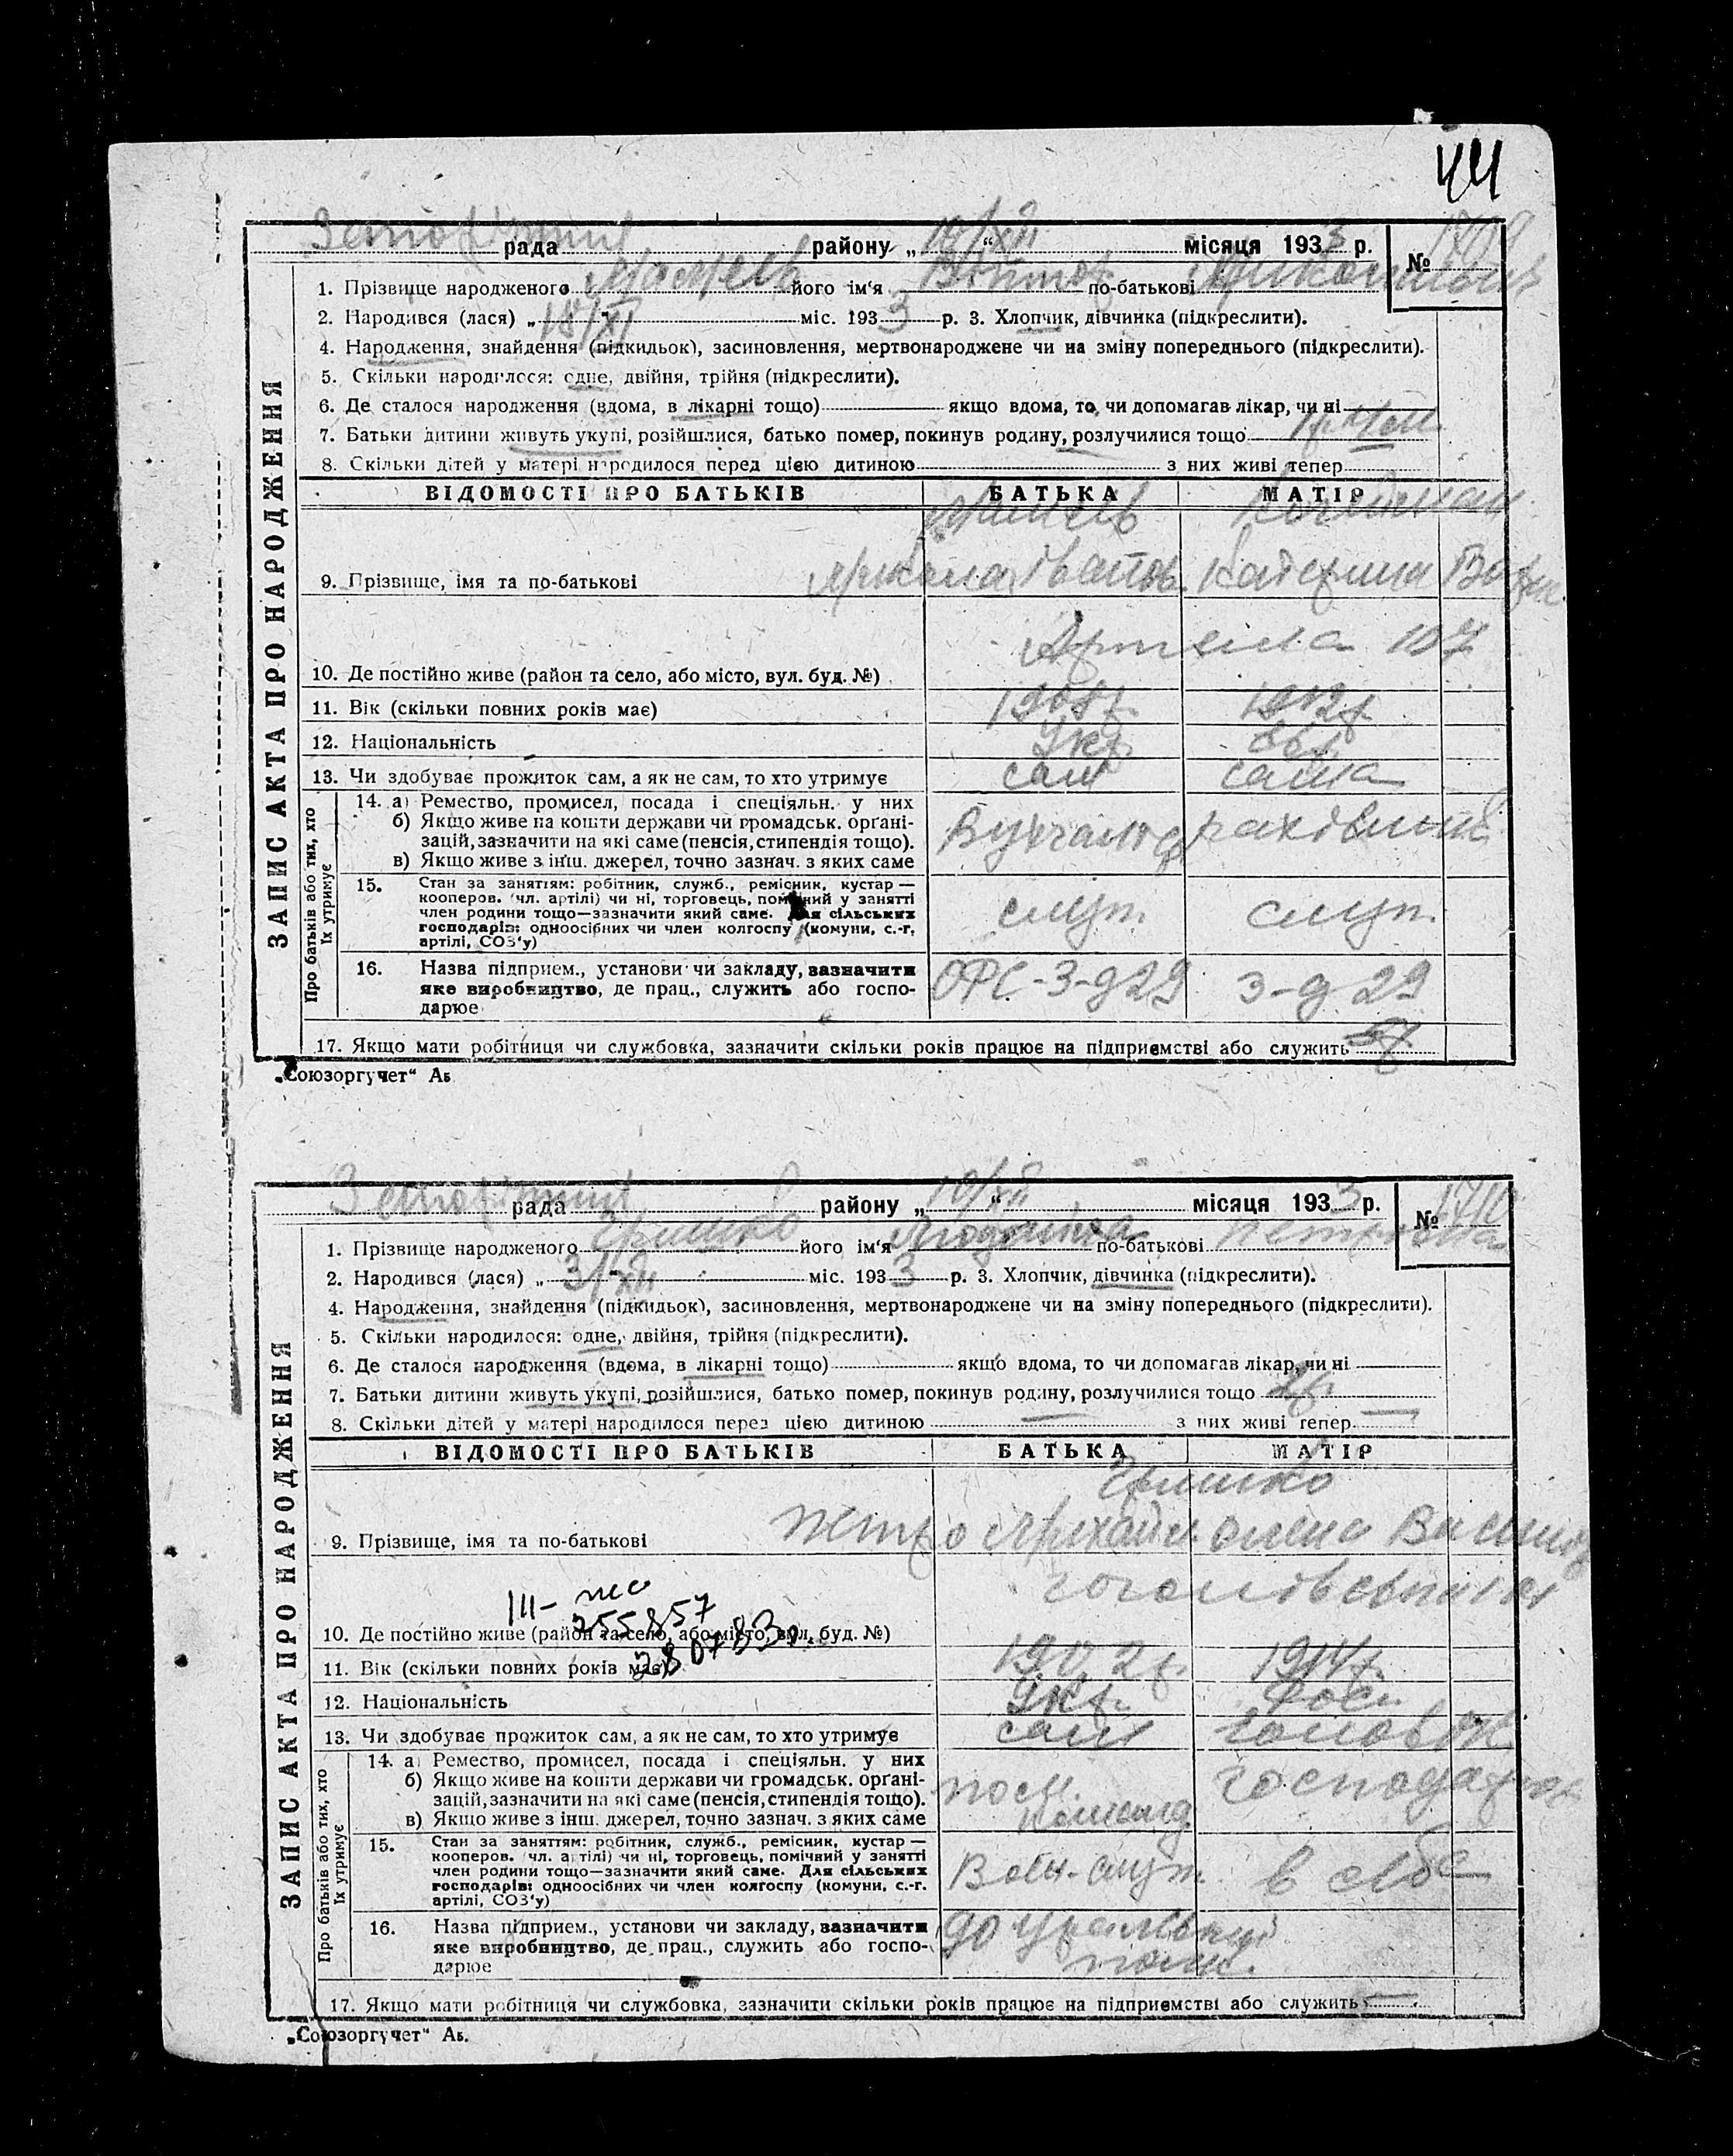 44
рада района „10/XII“ місяця 1933 р. №1709
1. Прізвище народженого його ім‘я Віктор по-батькові
2. Народився (лася) „18/XI“ міс. 1933 р. 3. Хлопчик, дівчинка (підкреслити).
4. Народження, знайдення (підкидьок), засиновлення, мертвонароджене чи на зміну попереднього (підкреслити).
5. Скільки народилося: одне, двійня, трійня (підкреслити).
6. Де сталося народження (вдома, в лікарні тощо) якщо вдома, то, чи допомагав лікар, чи ні
7. Батьки дитини живуть укупі, розійшлися, батько помер, покинув родину, розлучилися тощо
8. Скільки дітей у матері народилося перед цією дитиною з них живі тепер
ЗАПИС АКТА ПРО НАРОДЖЕННЯ
ВІДОМОСТІ ПРО БАТЬКІВ БАТЬКА МАТІР
9. Прізвище, імя та по-батькові Микола Іванов. Катерина
Артема 107
10. Де постійно живе (район та село, або місто, вул. буд. №)
11. Вік (скільки повних років має) 1908 р. 1912 р.
12. Національність Укр. євр.
13. Чи здобуває прожиток сам, а як не сам, то хто утримує сам сама
Про батьків або тих, хто їх утримує
14. а) Ремество, промисел, посада і спеціяльн. у них
б) Якщо живе на кошти держави чи громадськ. орґані-
зацій, зазначити на які саме (пенсія, стипендія тощо). Бухгалтер рахівник
в) Якщо живе з інш. джерел, точно зазнач. з яких саме
15. Стан за заняттям: робітник, служб., ремісник, кустар —
кооперов. (чл. артілі) чи ні, торговець, помічний у занятті
член родини тощо—зазначити який саме. Для сільських
господарів: одноосібних чи член колгоспу (комуни, с.-г.
артілі, СОЗ‘у) служ. служ.
16. Назва підприєм., установи чи закладу, зазначити
яке виробництво, де прац., служить або госпо-
дарює ОРС-З-д 29 З-д 29
17. Якщо мати робітниця чи службовка, зазначити скільки років працює на підприємстві або служить
„Союзоргучет“ Аб.
рада району „10/XII“ місяця 1933 р. №1710
1. Прізвище народженого Гришко його ім‘я Людмила по-батькові Петрівна
2. Народився (лася) „3/XII“ міс. 1933 р. 3. Хлопчик, дівчинка (підкреслити).
4. Народження, знайдення (підкидьок), засиновлення, мертвонароджене чи на зміну попереднього (підкреслити).
5. Скільки народилося: одне, двійня, трійня (підкреслити).
6. Де сталося народження (вдома, в лікарні тощо) якщо вдома, то чи допомагав лікар, чи ні
7. Батьки дитини живуть укупі, розійшлися, батько помер, покинув родину, розлучилися тощо
8. Скільки дітей у матері народилося перед цією дитиною з них живі тепер
ЗАПИС АКТА ПРО НАРОДЖЕННЯ
ВІДОМОСТІ ПРО БАТЬКІВ БАТЬКА МАТІР
Гришко
9. Прізвище, імя та по-батькові Петро Михайл. Олена Василів
III-жс
255857
10. Де постійно живе (район та село, або місто, вул. буд. №)
280783р.
11. Вік (скільки повних років має) 1902 р. 1914 р.
12. Національність Укр. Рос.
13. Чи здобуває прожиток сам, а як не сам, то хто утримує сам чоловік
Про батьків або тих, хто їх утримує
14. а) Ремество, промисел, посада і спеціяльн. у них
б) Якщо живе на кошти держави чи громадськ. орґані-
зацій, зазначити на які саме (пенсія, стипендія тощо). пом. команд.
в) Якщо живе з інш. джерел, точно зазнач. з яких саме
15. Стан за заняттям: робітник, служб., ремісник, кустар —
кооперов. (чл. артілі) чи ні, торговець, помічний у занятті
член родини тощо—зазначити який саме. Для сільських
господарів: одноосібних чи член колгоспу (комуни, с.-г.
артілі, СОЗ‘у) служ. в себе
16. Назва підприєм., установи чи закладу, зазначити
яке виробництво, де прац., служить або госпо-
дарює
17. Якщо мати робітниця чи службовка, зазначити скільки років працює на підприємстві або служить
„Союзоргучет“ Аб.